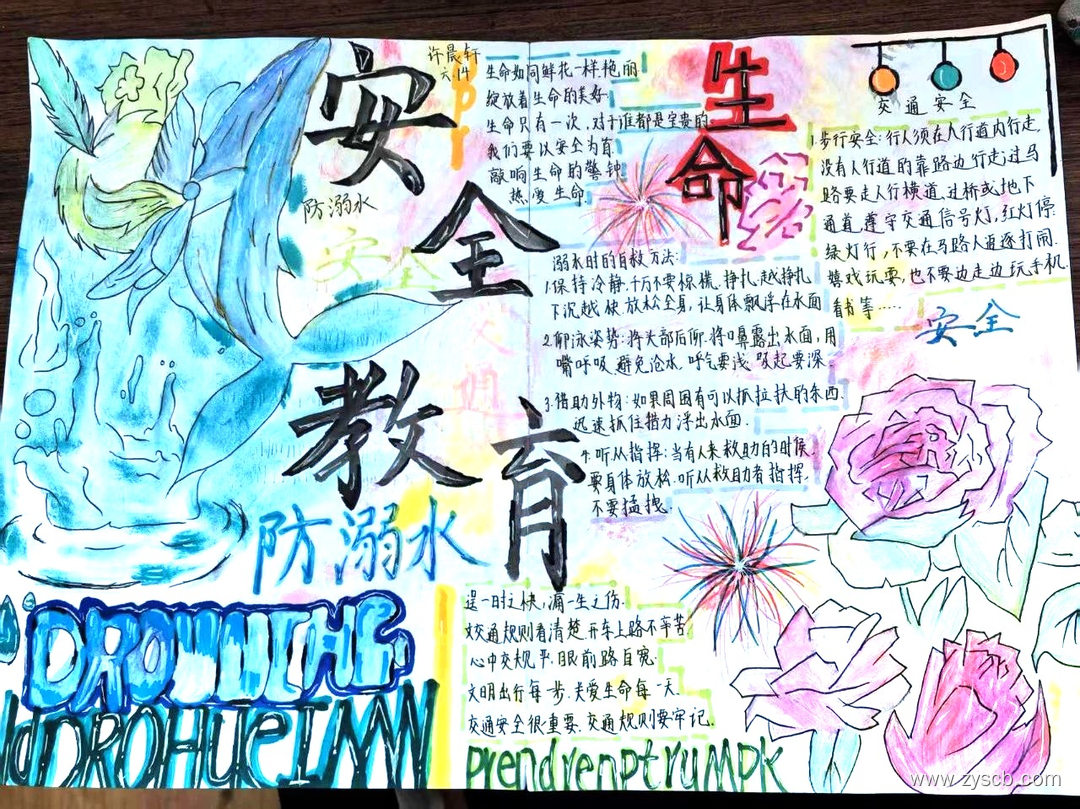 安全教育
许晨轩
六14
生命如同鲜花一样艳丽
绽放着生命的美好
生命只有一次,对于谁都是宝贵的
我们要以安全为首
敲响生命的警钟
热爱生命
生命
交通安全
1.步行安全:行人须在人行道内行走,
没有人行道的靠路边行走;过马
路要走人行横道,过桥或地下
通道,遵守交通信号灯,红灯停
绿灯行,不要在马路人道逐打闹
嬉戏玩耍,也不要边走边玩手机
看书等……
安全
防溺水
安全
溺水时的自救方法:
1.保持冷静,千万不要惊慌,挣扎,越挣扎
下沉越快,放松全身,让身体飘浮在水面
2.仰泳姿势:将头部后仰,将口鼻露出水面,用
嘴呼吸,避免沧水,呼气要浅,吸起要深
3.借助外物:如果周围有可以抓拉扶的东西
迅速抓住借力浮出水面
4.听从指挥:当有人来救助的时候
要身体放松,听从救助者指挥,
不要猛拽
防溺水
逞一时之快,漏一生之伤.
交通规则看清楚,开车上路不辛苦
心中交规平,眼前路自宽
文明出行每一步,关爱生命每一天
交通安全很重要,交通规则要牢记
prendrenptrumpk
www.zyscb.com